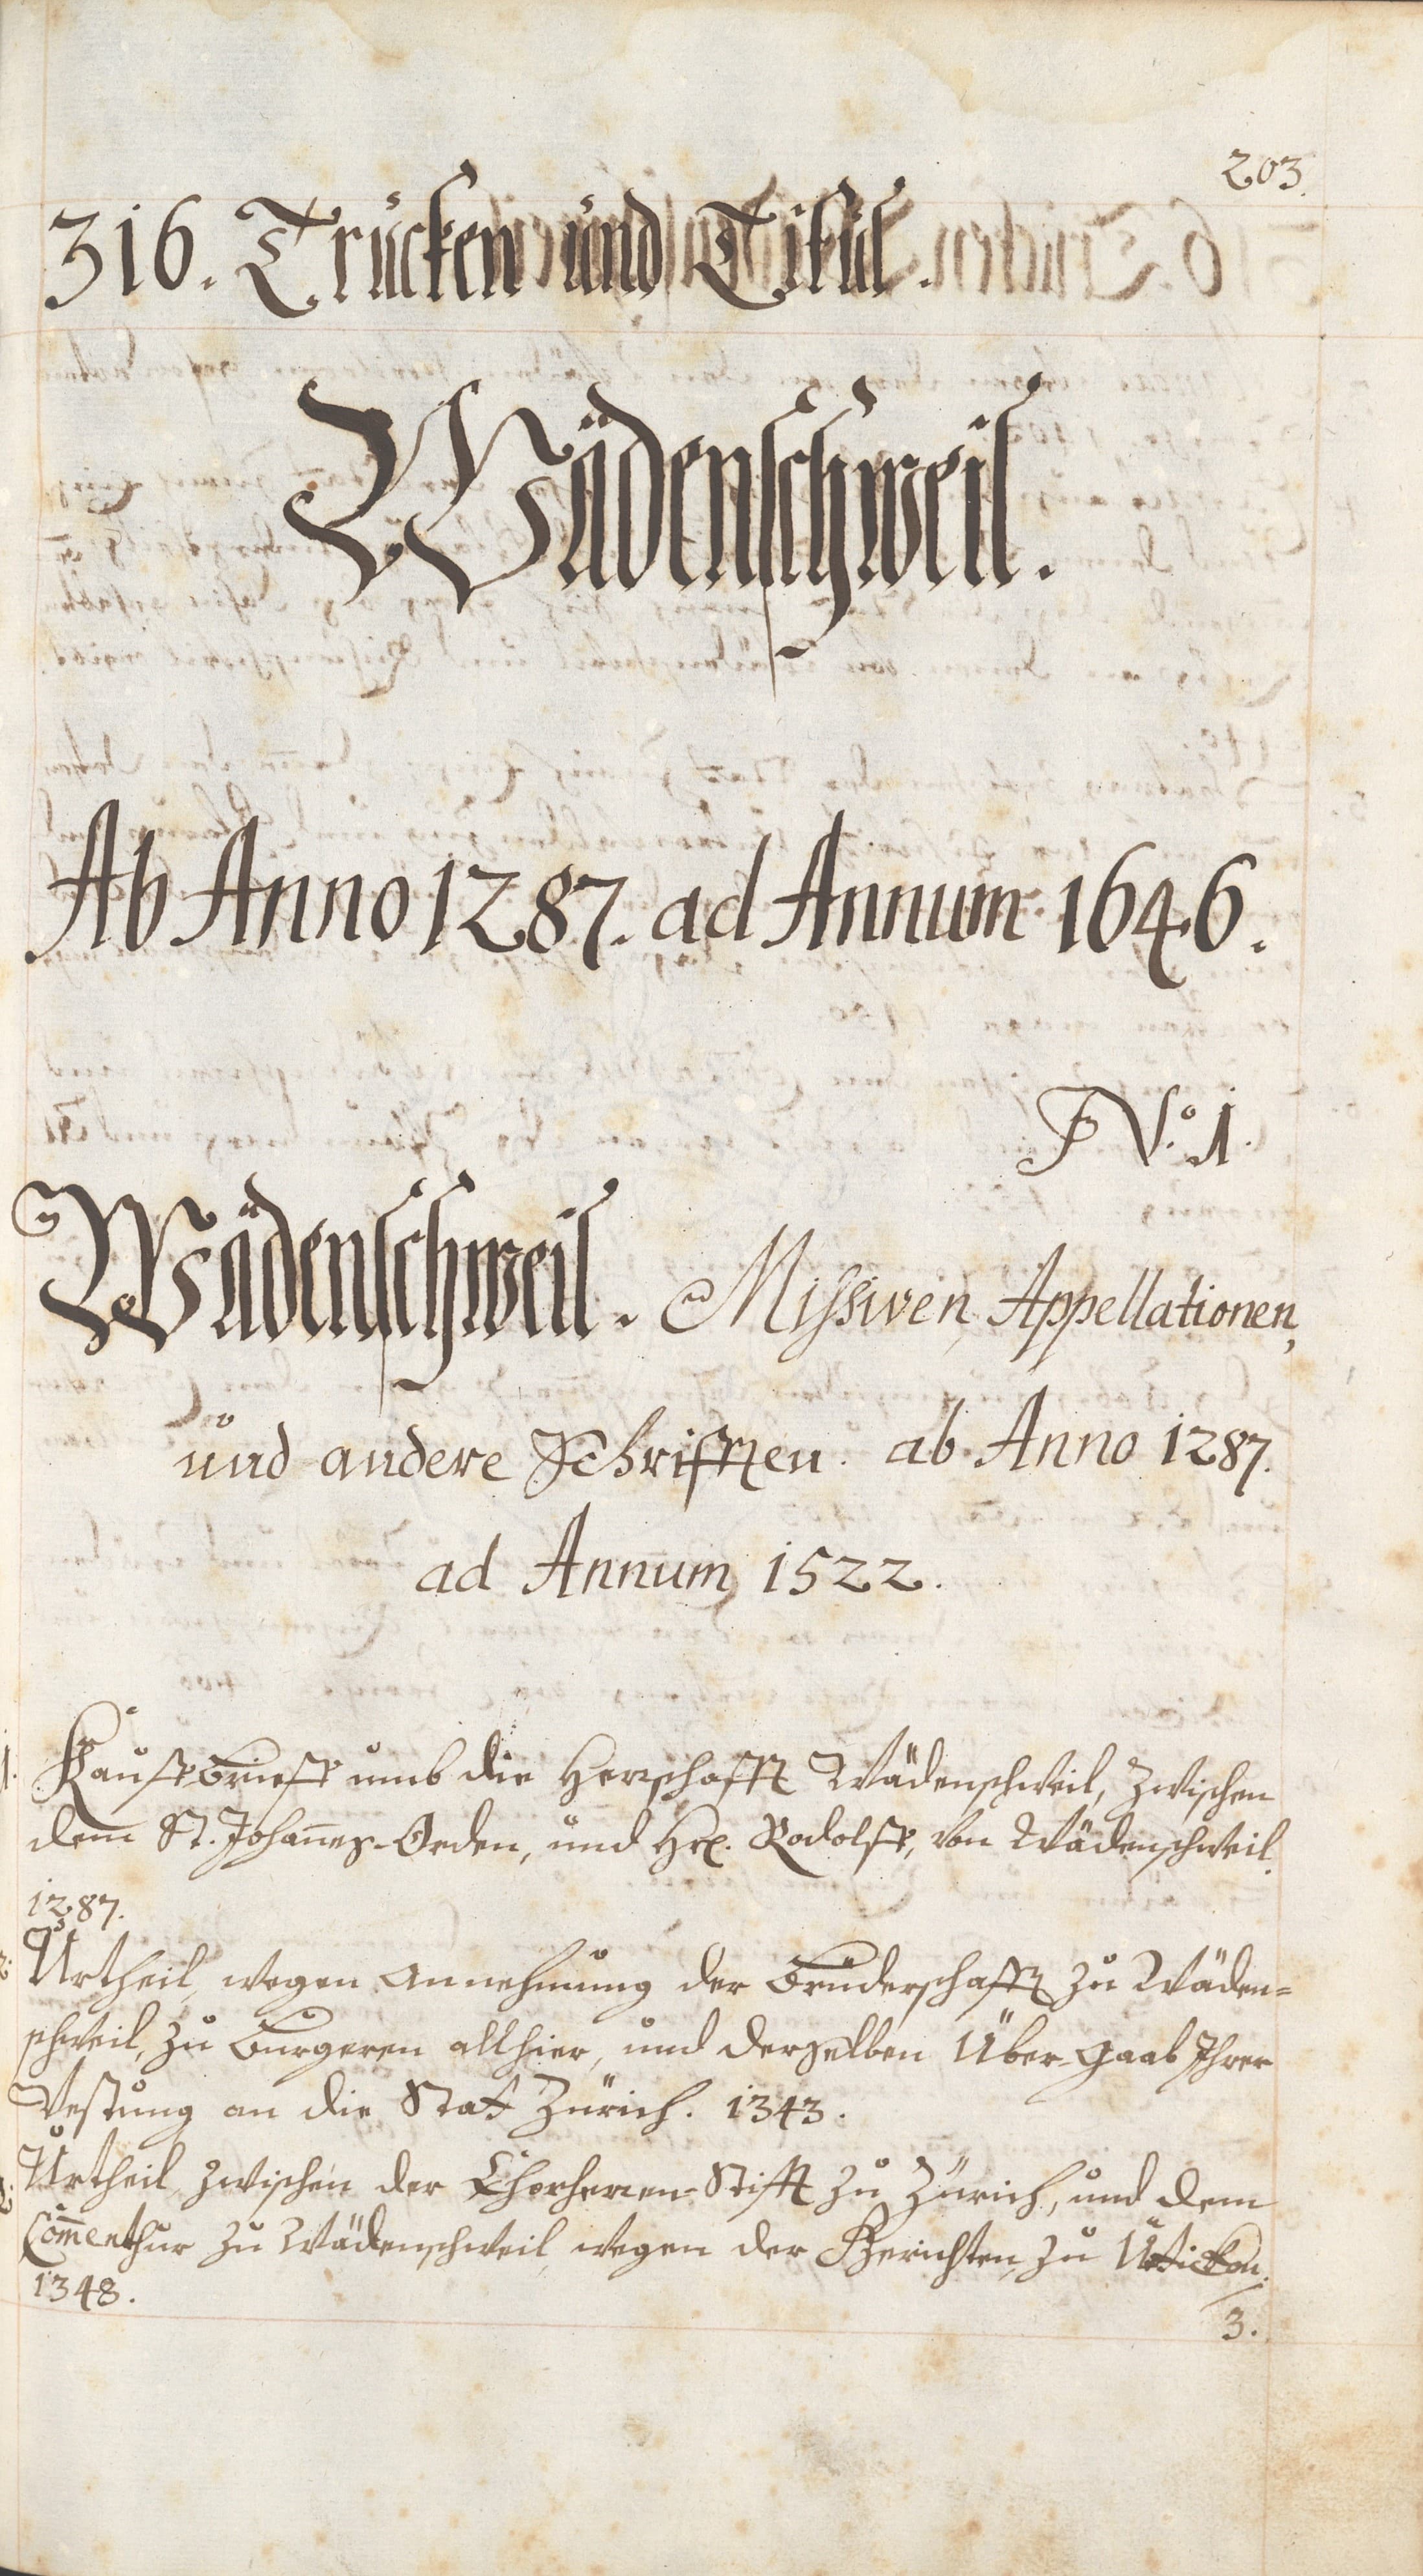 203.
316. Trucken und Titul.
Wädenschweil.
Ab Anno 1287. ad Annum 1646.
N.º 1.
Wädenschweil. Missiven, Appellationen,
und andere Schrifften. ab Anno 1287.
ad Annum 1522.
1. Kauffbrieff umb die Herrschafft Wädenschweil, zwischen
dem St. Johañes-Orden, und Hr. Rodolff, von Wädenschweil.
1287.
2. Urtheil, wegen Annehmung der Bruderschafft zu Wäden=
schweil, zu Burgeren allhier, und derselben Über-Gaab Ihrer
Vestung an die Stat Zürich. 1343.
Urtheil, zwischen der Chorherren-Stifft zu Zürich, und dem
Com̃enthur zu Wädenschweil, wegen der Gerichten, zu Ütickon.
1348.
3.